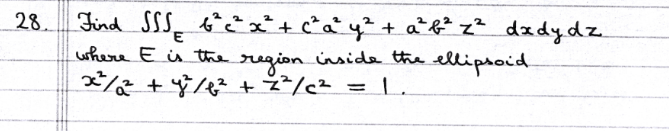 28. Find ∭_E b²c²x² + c²a²y² + a²b²z² dxdydz
where E is the region inside the ellipsoid
x²/a² + y²/b² + z²/c² = 1.